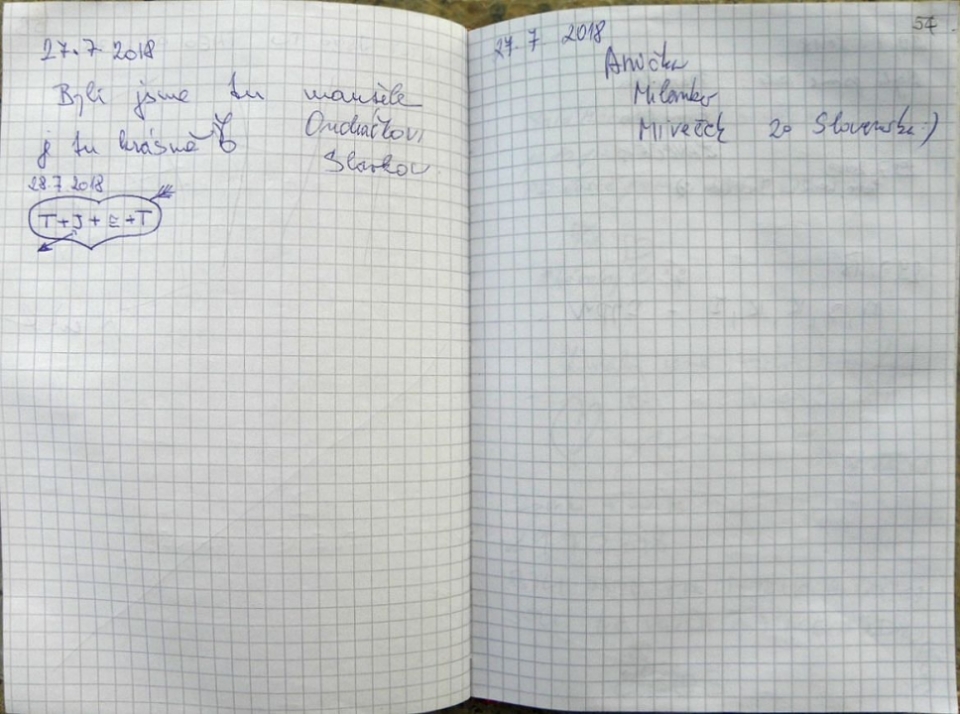 27.7 2018
Byli jsme tu manžele
Ondráčkovi
je tu krásně
Slavkov
28.7 2018
T+J+E+T
57
27.7 2018
Anička
Milanko
zo Slovenska :)